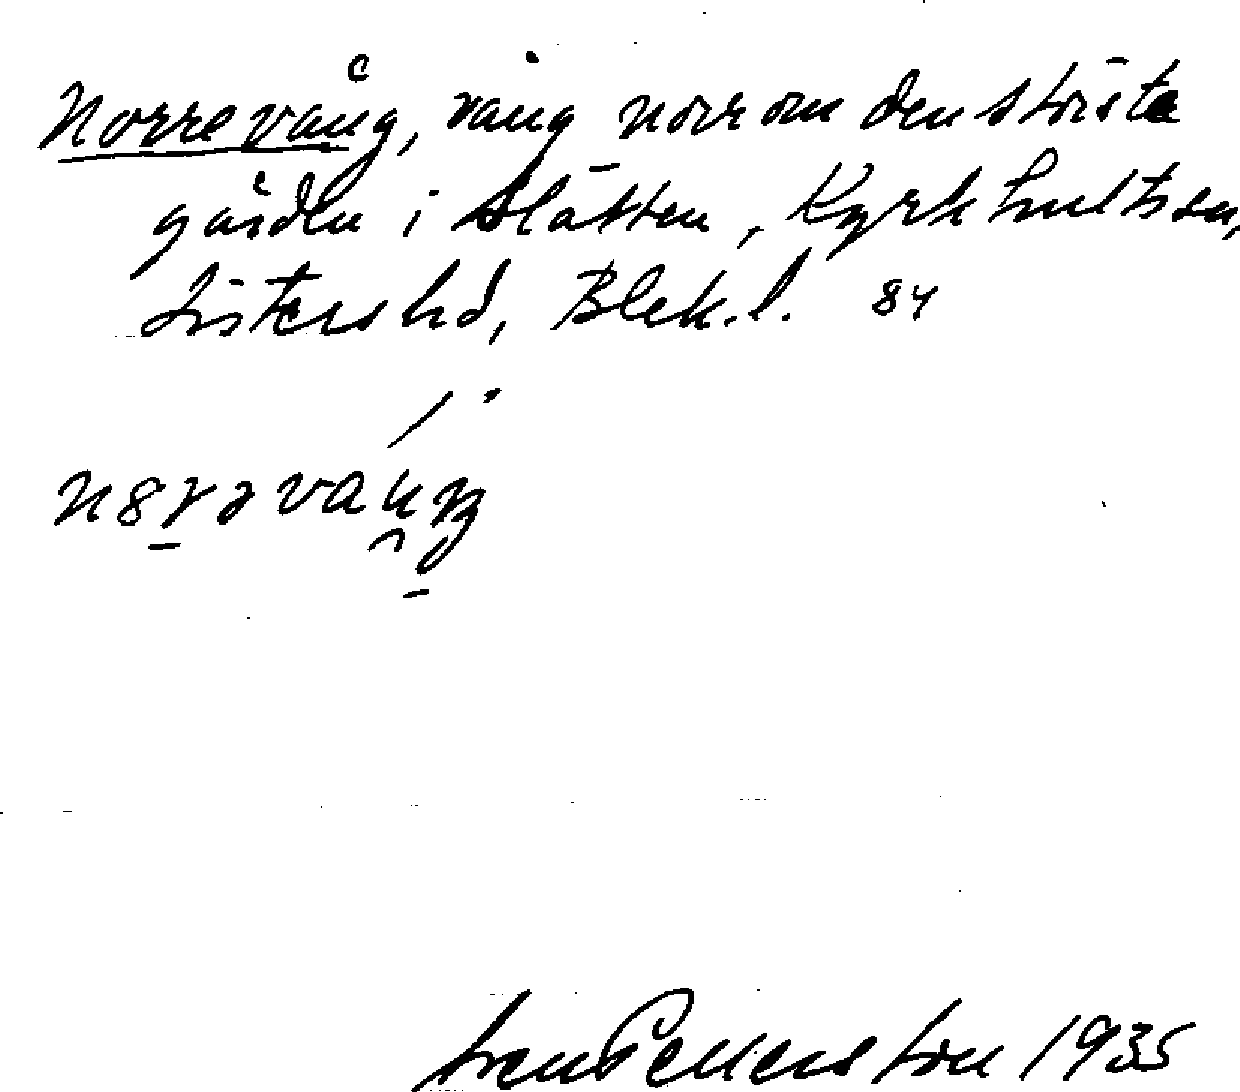 Norrevång, vång norr om den största
gården i Slätten, Kyrkhults sn,
Listers hd, Blek. l. 84
1935